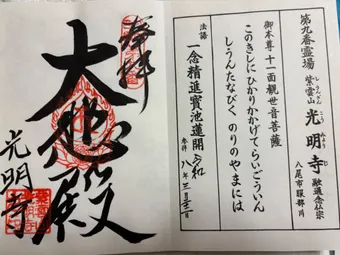 第九番霊場
紫雲山 光明寺 融通念仏宗
しうんざん こうみょうじ
八尾市服部川
御本尊 十一面観世音菩薩
このきしにひかりかかげてらいごういん
しうんたなびく のりのやまには
法語
一念精進寳池蓮開
令和八年三月
奉拝
大悲殿
光明寺